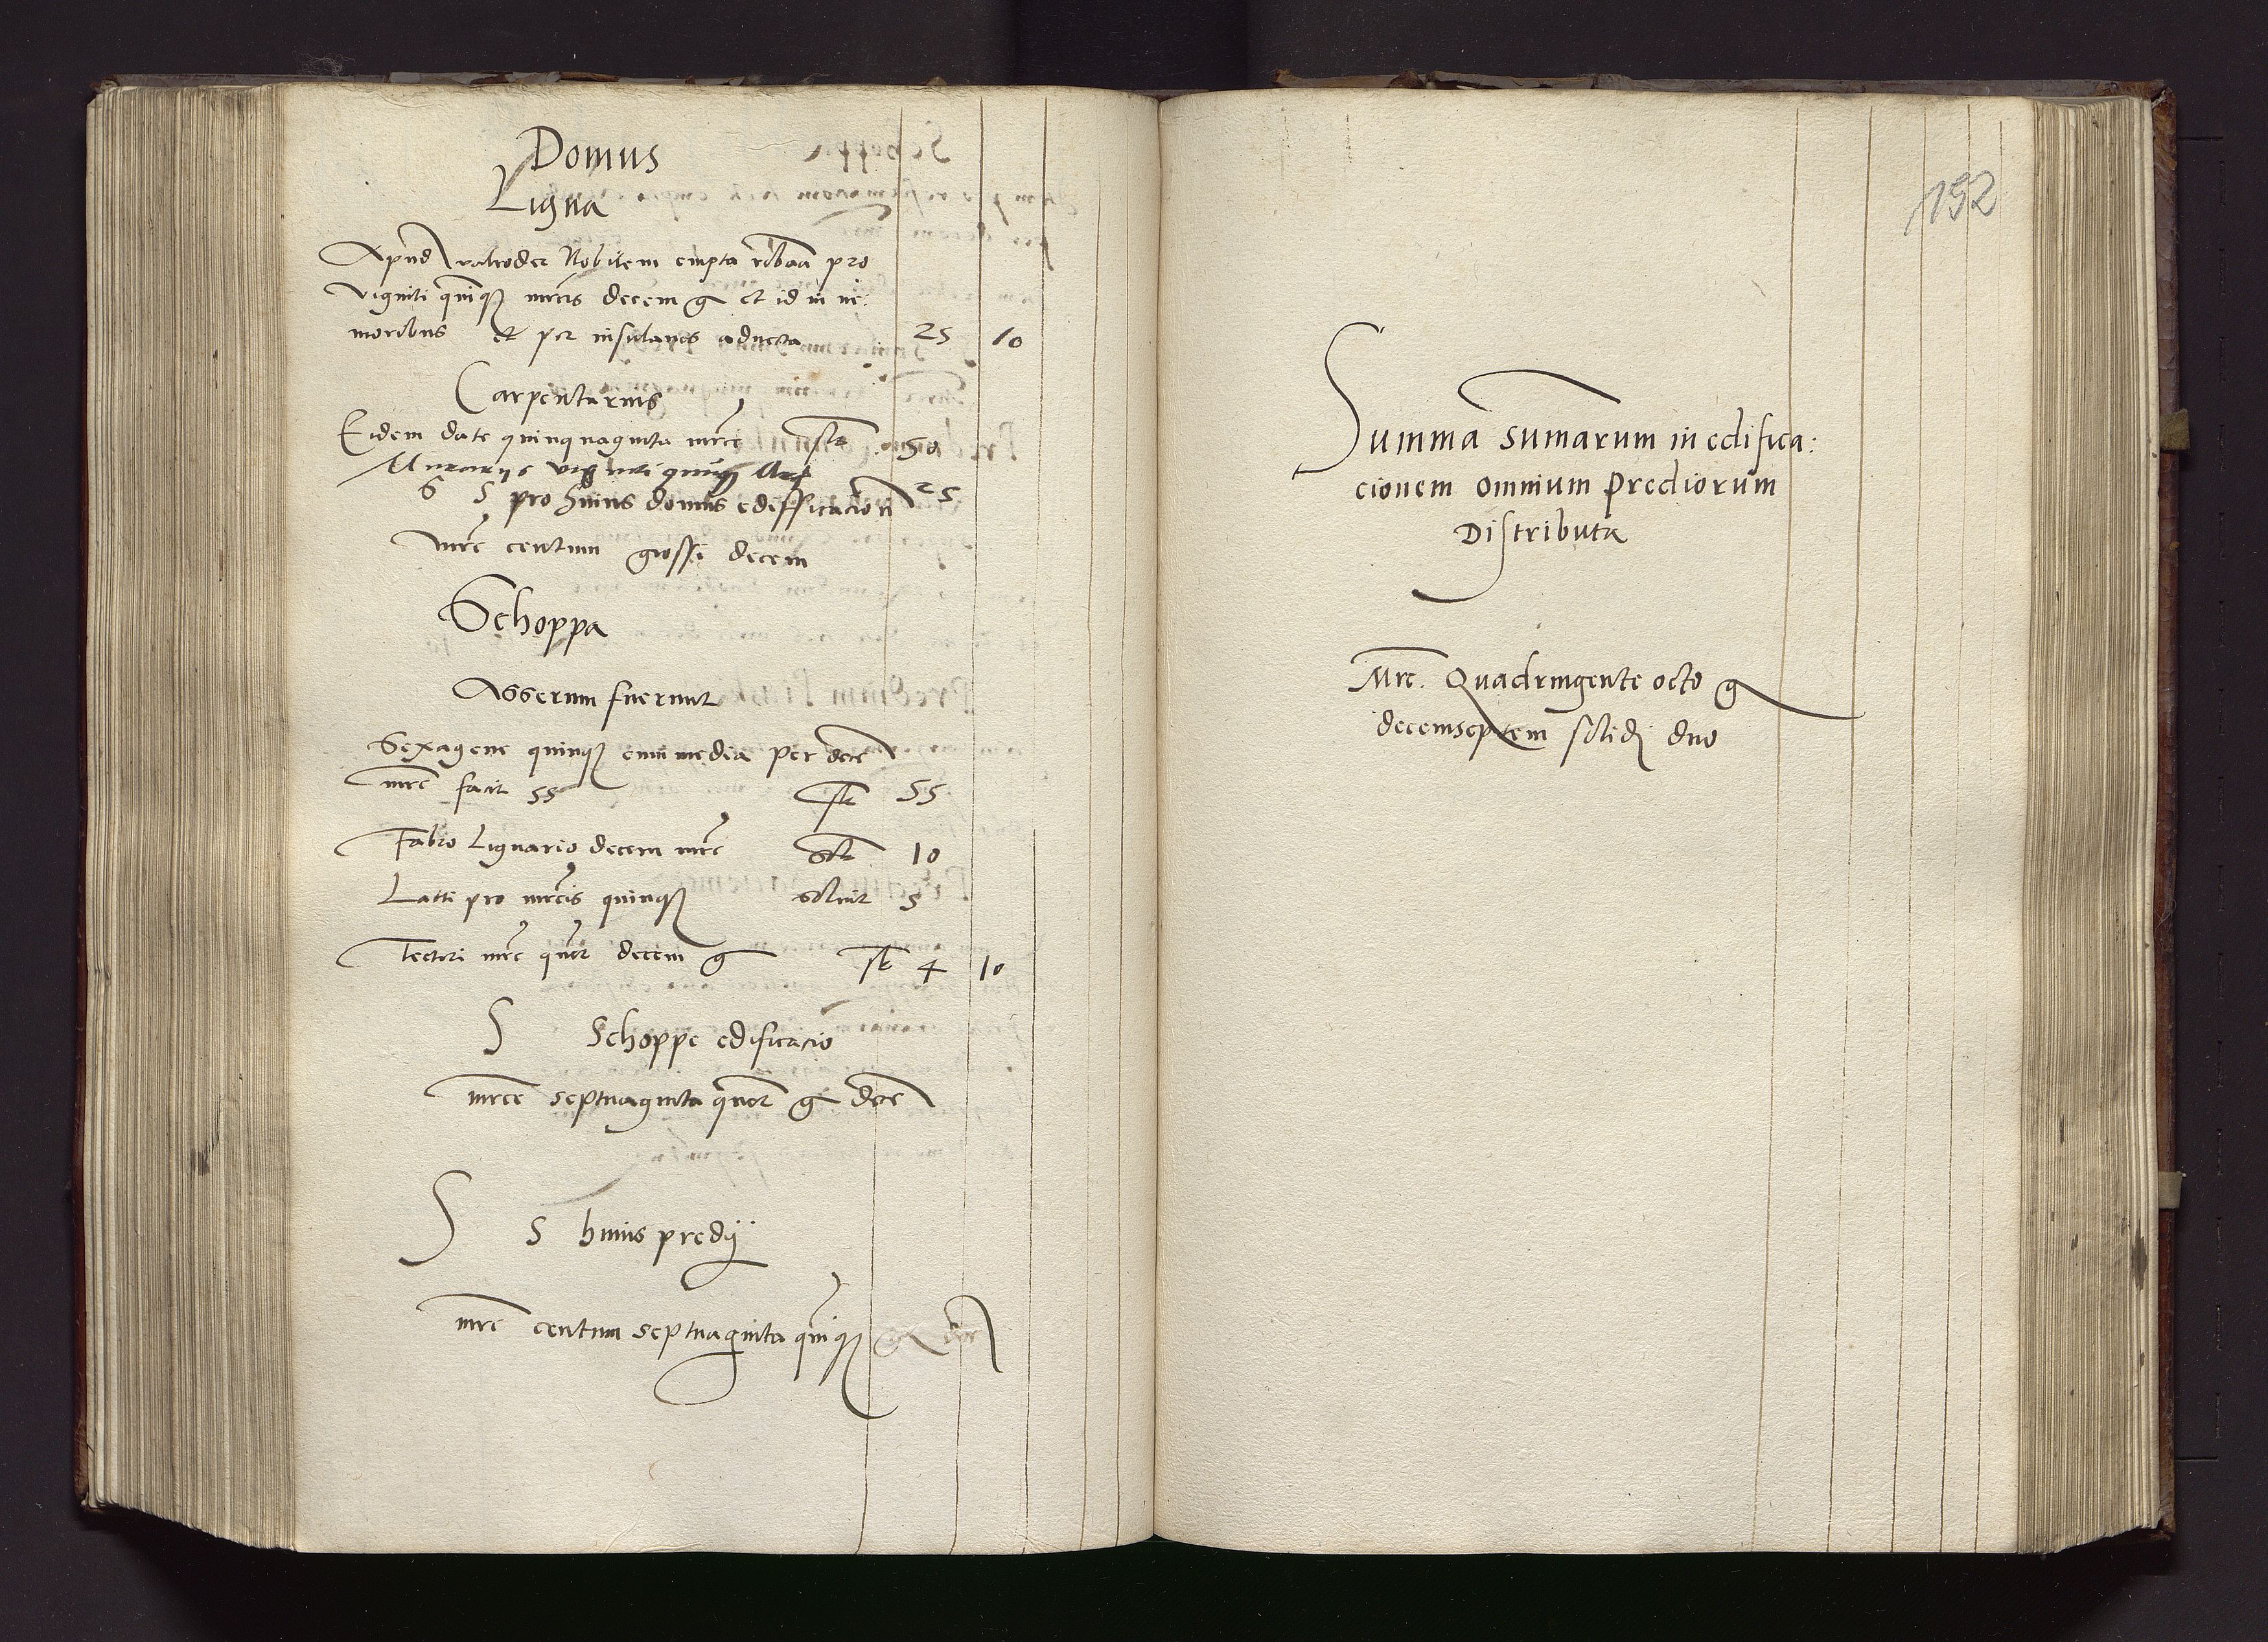 Domus
Ligna
Apud Nobilem empta pro
viginti quinq mrcis decem g et id in ne:
moribus et per insulanos aducta 25 10
Carpentarius
Eidem date quinquaginta mrce flt 50
Murarijs viginti quinq Mrc 25
S pro huius domus edifficacion
mrc centum grossi decem
Schoppa
Asserum fuerunt
Sexagene quinq cum media per dece
mrc facit 55 flt 55
Fabro Lignario decem mrc solt 10
Latti pro mrcis quinq soluit 5
Tectori mrc quor decem g flt 4 10
S Schoppe edificacio
mrce septuaginta quor g dece
S S huius predij
mrc centum septuaginta quinq g dece
192
Summa sumarum in edifica:
cionem omnium Prediorum
Distributa
Mrc. Quadringente octo g
decemseptem solidi duo